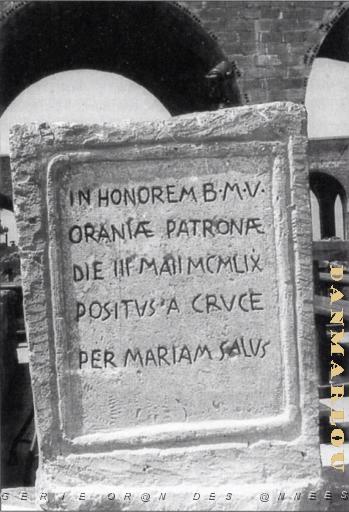 IN HONOREM B·M·V·
ORANIÆ PATRONÆ
DIE III MAII MCMLIX
POSITVS A CRVCE
PER MARIAM SALVS
DANMARLOU
GERIE OR@N DES @NNEES